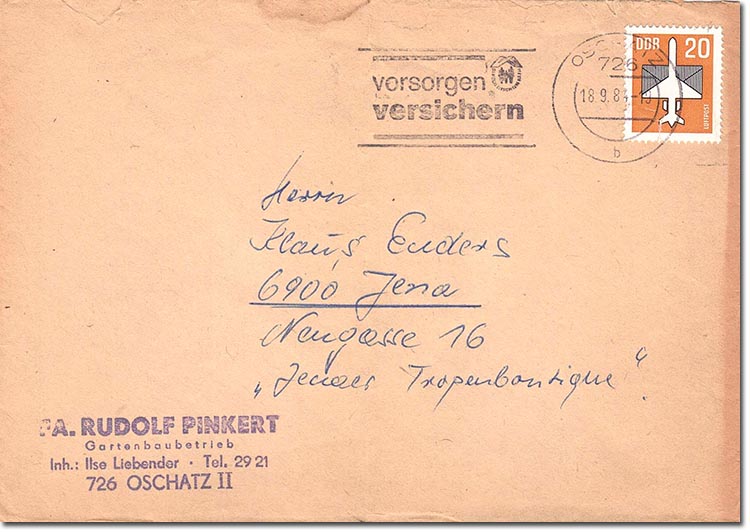 DDR 20
LUFTPOST
OSCHATZ
726
18.9.84-19
b
vorsorgen
versichern
Herrn
Klaus Enders
6900 Jena
Neugasse 16
„Jenaer Tropenboutique“
FA. RUDOLF PINKERT
Gartenbaubetrieb
Inh.: Ilse Liebender · Tel. 29 21
726 OSCHATZ II